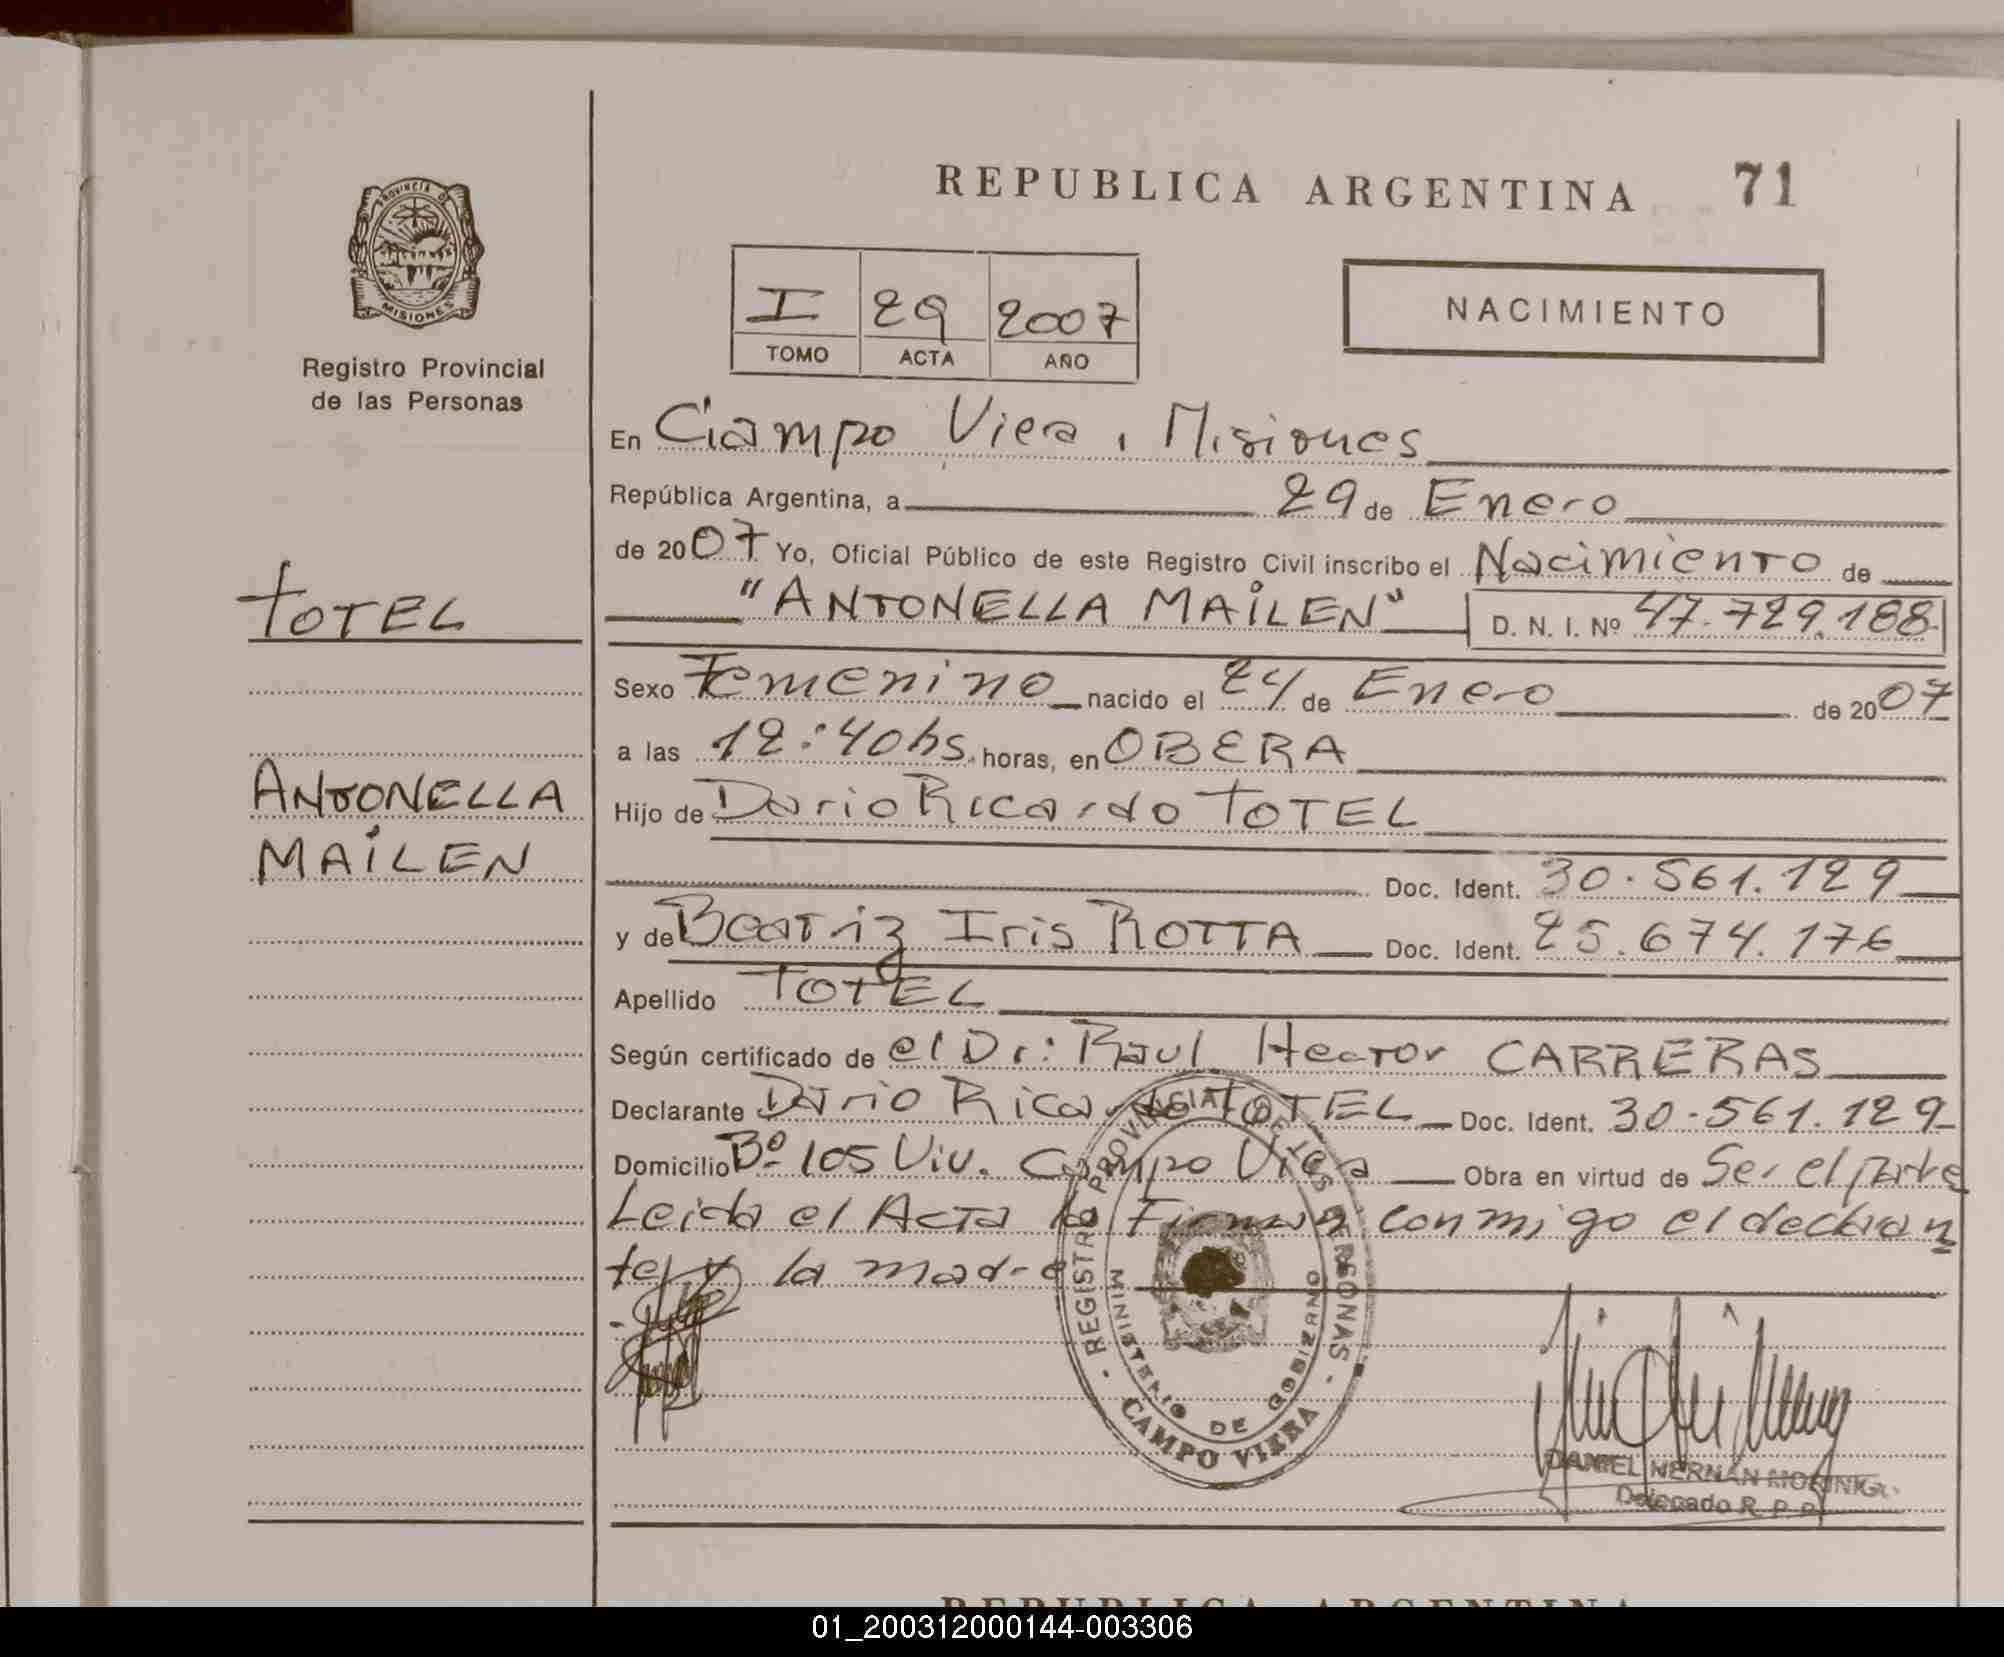 REPUBLICA ARGENTINA 71
PROVINCIA DE MISIONES
Registro Provincial
de las Personas
I 29 2007
TOMO ACTA AÑO
NACIMIENTO
En Campo Viera, Misiones
República Argentina, a 29 de Enero
de 2007 Yo, Oficial Público de este Registro Civil inscribo el Nacimiento de
TOTEL
"ANTONELLA MAILEN" D. N. I. Nº 47.729.188
Sexo Femenino nacido el 24 de Enero de 2007
a las 12:40hs. horas, en OBERA
ANTONELLA
MAILEN
Hijo de Dario Ricardo TOTEL
Doc. Ident. 30.561.129
y de Beatriz Iris ROTTA Doc. Ident. 25.674.176
Apellido TOTEL
Según certificado de el Dr: Raul Hector CARRERAS
Declarante Dario Ricardo TOTEL Doc. Ident. 30.561.129
Domicilio Bº 105 Viv. Campo Viera Obra en virtud de Ser el padre
Leida el Acta la Firman conmigo el declaran
te y la madre
REGISTRO PROVINCIAL DE LAS PERSONAS
MINISTERIO DE GOBIERNO
CAMPO VIERA
DANIEL HERNAN
Delegado R. P. P.
REPUBLICA ARGENTINA
01_200312000144-003306